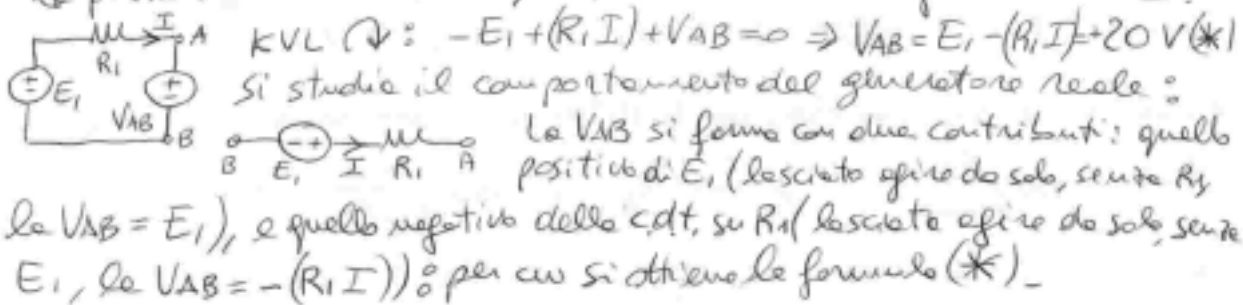 I A KVL ↷: -E₁+(R₁I)+VAB=0 ⇒ VAB=E₁-(R₁I)=+20 V(*)
R₁
E₁ VAB B si studia il comportamento del generatore reale:
B E₁ I R₁ A La VAB si forma con due contributi: quello
positivo di E₁ (lasciato agire da solo, senza R₁
la VAB = E₁), e quello negativo della c.d.t. su R₁ (lasciata agire da sola, senza
E₁, la VAB = -(R₁I)): per cui si ottiene la formula (*)_